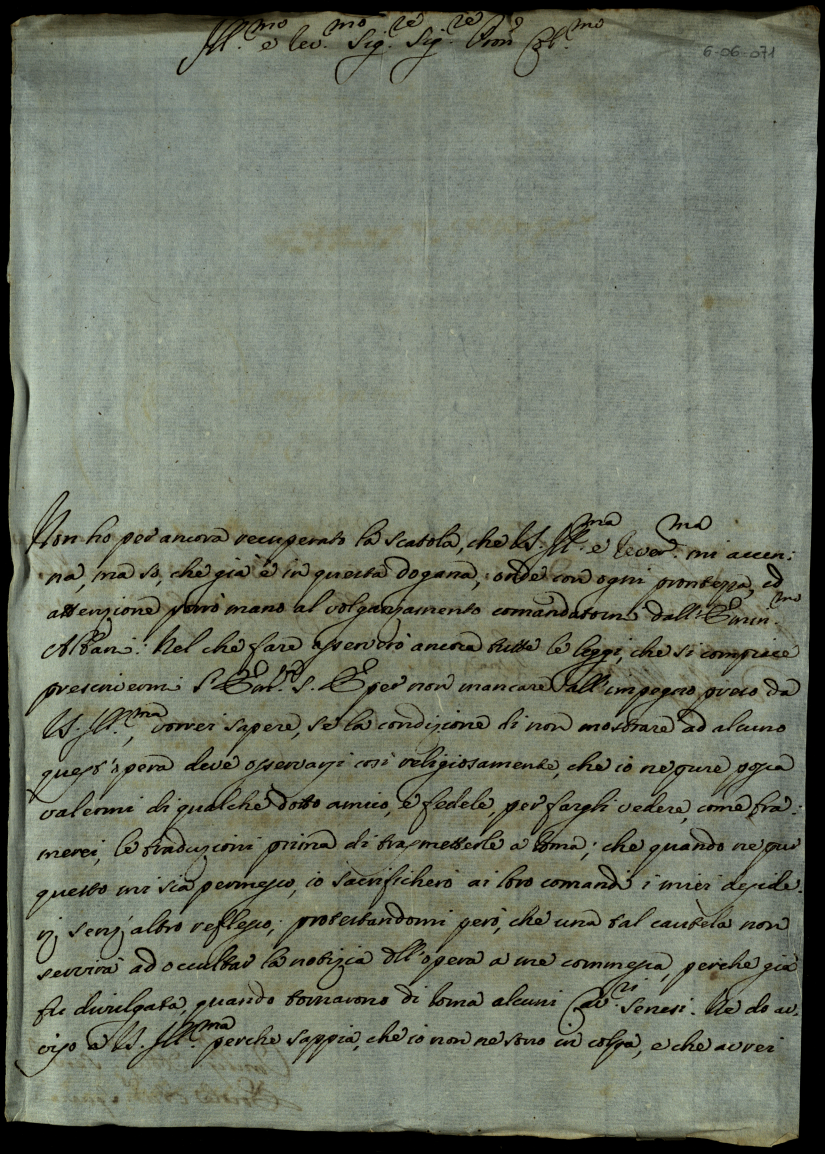 Ill.mo e Rev.mo Sig.re Sig.re Pron Col.mo
6-06-071
Non ho per ancora recuperato la scatola, che V.S. Ill.ma e Rever.ma mi accen:
na, ma so, che già è in questa dogana, onde con ogni prontezza, ed
attenzione porrò mano al volgarizamento comandatomi dall'Emin.mo
Albani: Nel che fare osservarò ancora tutte le leggi, che si compiace
prescrivermi S. Em.za S. E per non mancare all'impegno preso da
V.S. Ill.ma, vorrei sapere, se la condizione di non mostrare ad alcuno
quest'opera deve osservarsi così religiosamente, che io nepure possa
valermi di qualche dotto amico, e fedele, per fargli vedere, come bra:
merei, le traduzioni prima di trasmetterle a Roma; che quando nepur
questo mi sia permesso, io sacrificherò ai loro comandi i miei deside:
rj senz'altro reflesso; protestandomi però, che una tal cautela non
servirà ad occultar la notizia dell'opera a me commessa, perche già
fu divulgata, quando tornarono di Roma alcuni Cav.ri Senesi. Ne do av:
viso a V.S. Ill.ma perche sappia, che io non ne sono in colpa, e che avrei